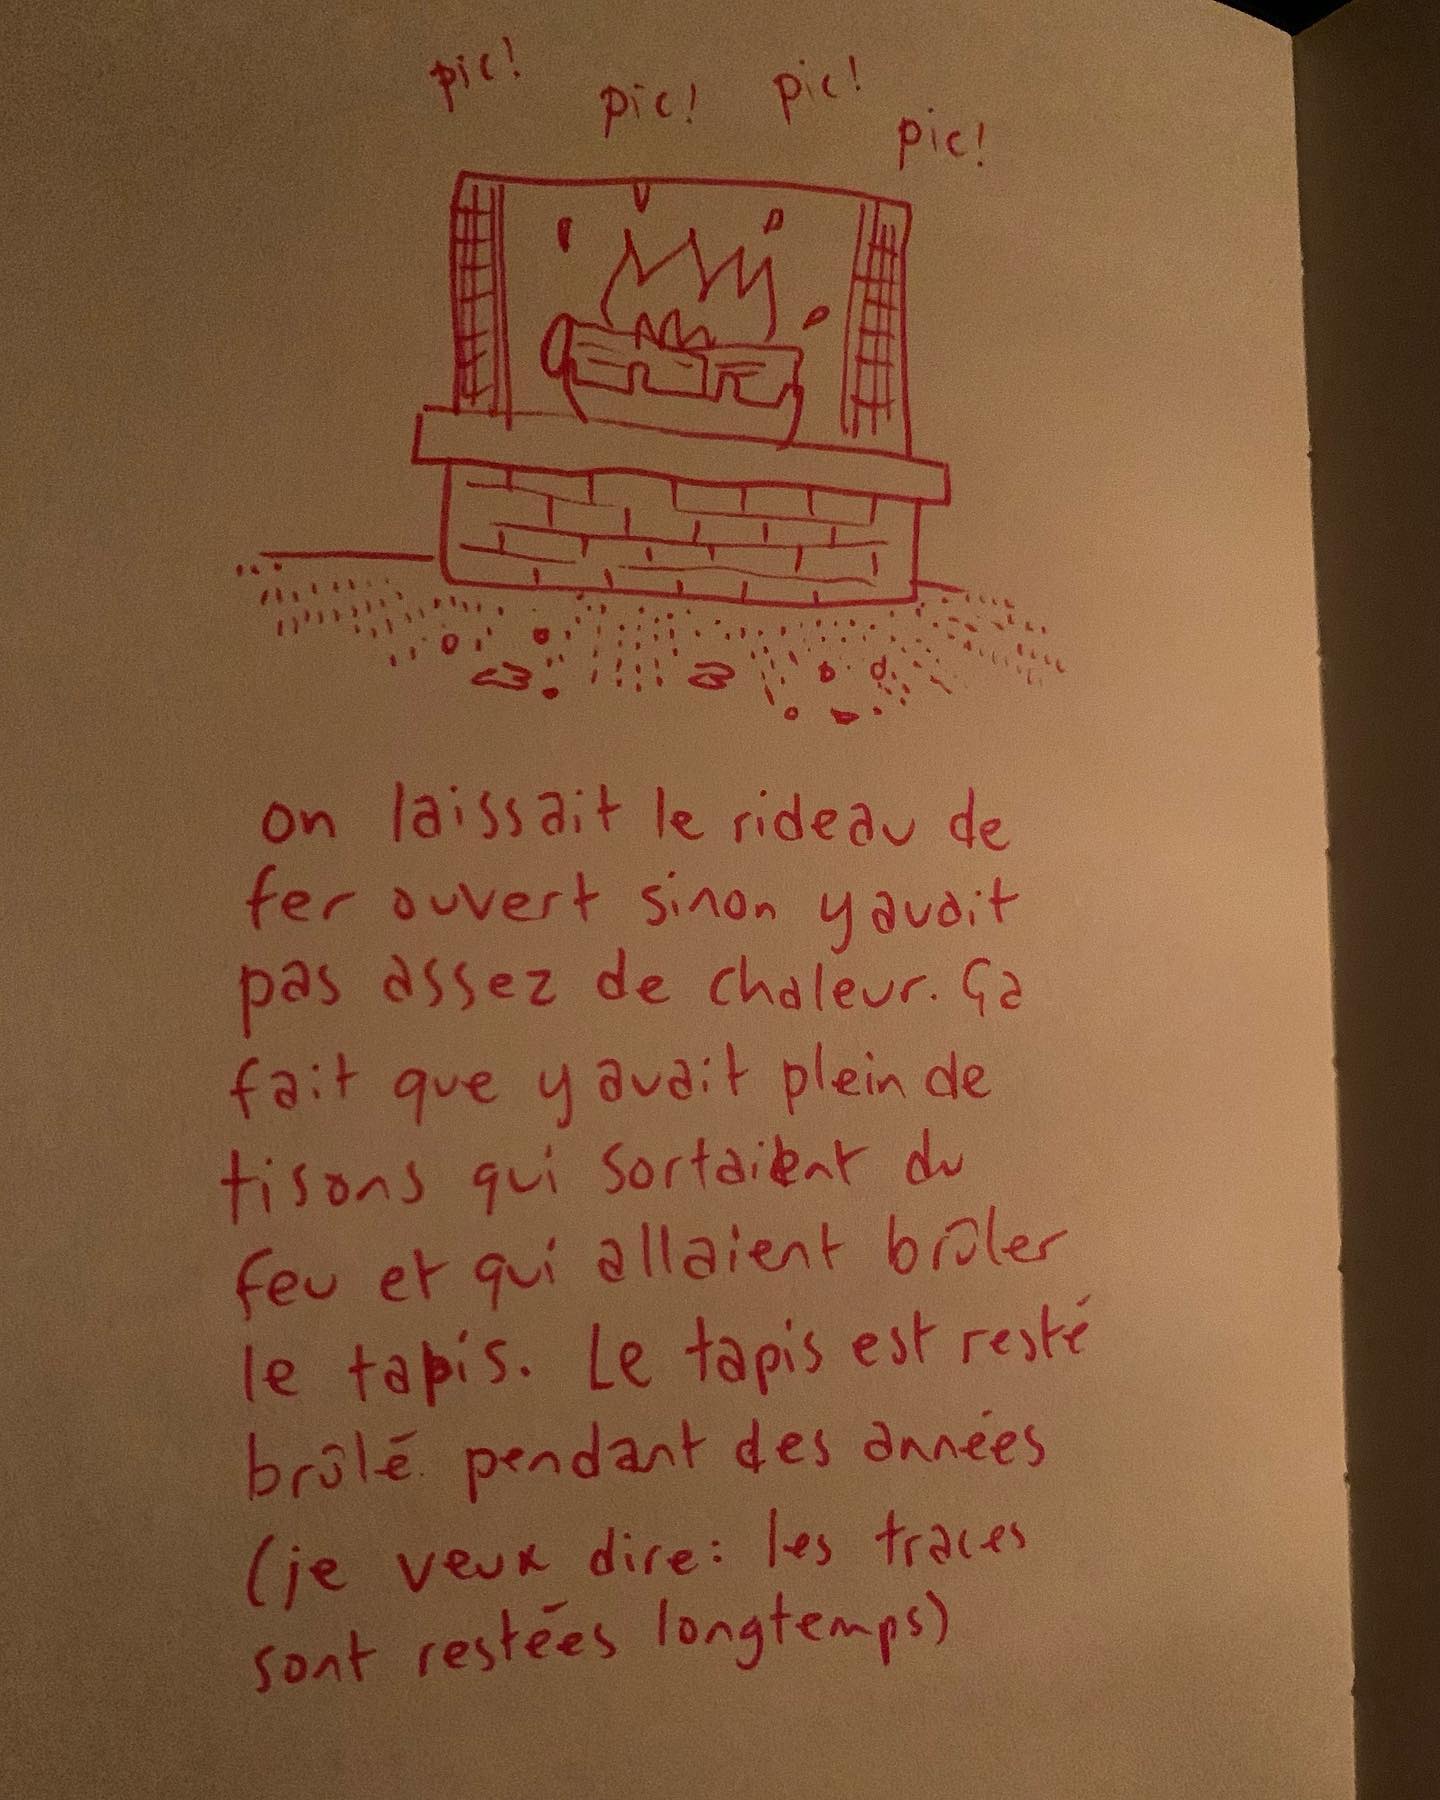 pic!
pic!
pic!
pic!
on laissait le rideau de
fer ouvert sinon y avait
pas assez de chaleur. Ça
fait que y avait plein de
tisons qui sortaient du
feu et qui allaient brûler
le tapis. Le tapis est resté
brûlé pendant des années
(je veux dire: les traces
sont restées longtemps)